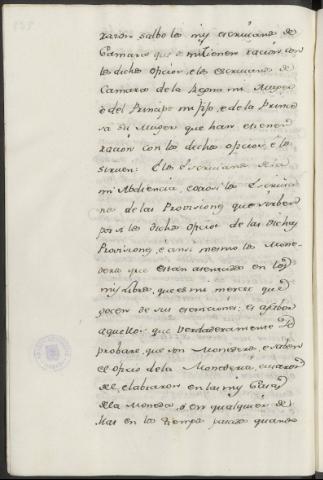 razon salbo los mis escrivanos de
Camara que de mi tienen racion con
los dichos oficios, e los escrivanos de
Camara de la Reyna mi Muger
e del Principe mi fijo, e de la Prince
sa su Muger que han e tienen
racion con los dichos oficios, e lo
sirven: E los Escrivanos de la
mi Abdiencia, e
nos de las Provisiones que sirben
por si los dichos oficios de las dichas
Provisiones, e ansi mesmo los Mone
deros que estan asentados en los
mis libros, que es mi merced que
gocen de sus esenciones; es a saber
aquellos que verdaderamente se
probare, que son Monederos, e saben
el oficio de la Monederia, e usaron
de el, e labraron en las mis Casas
de la Moneda, o en qualquier de
llas en los tiempos pasados quando